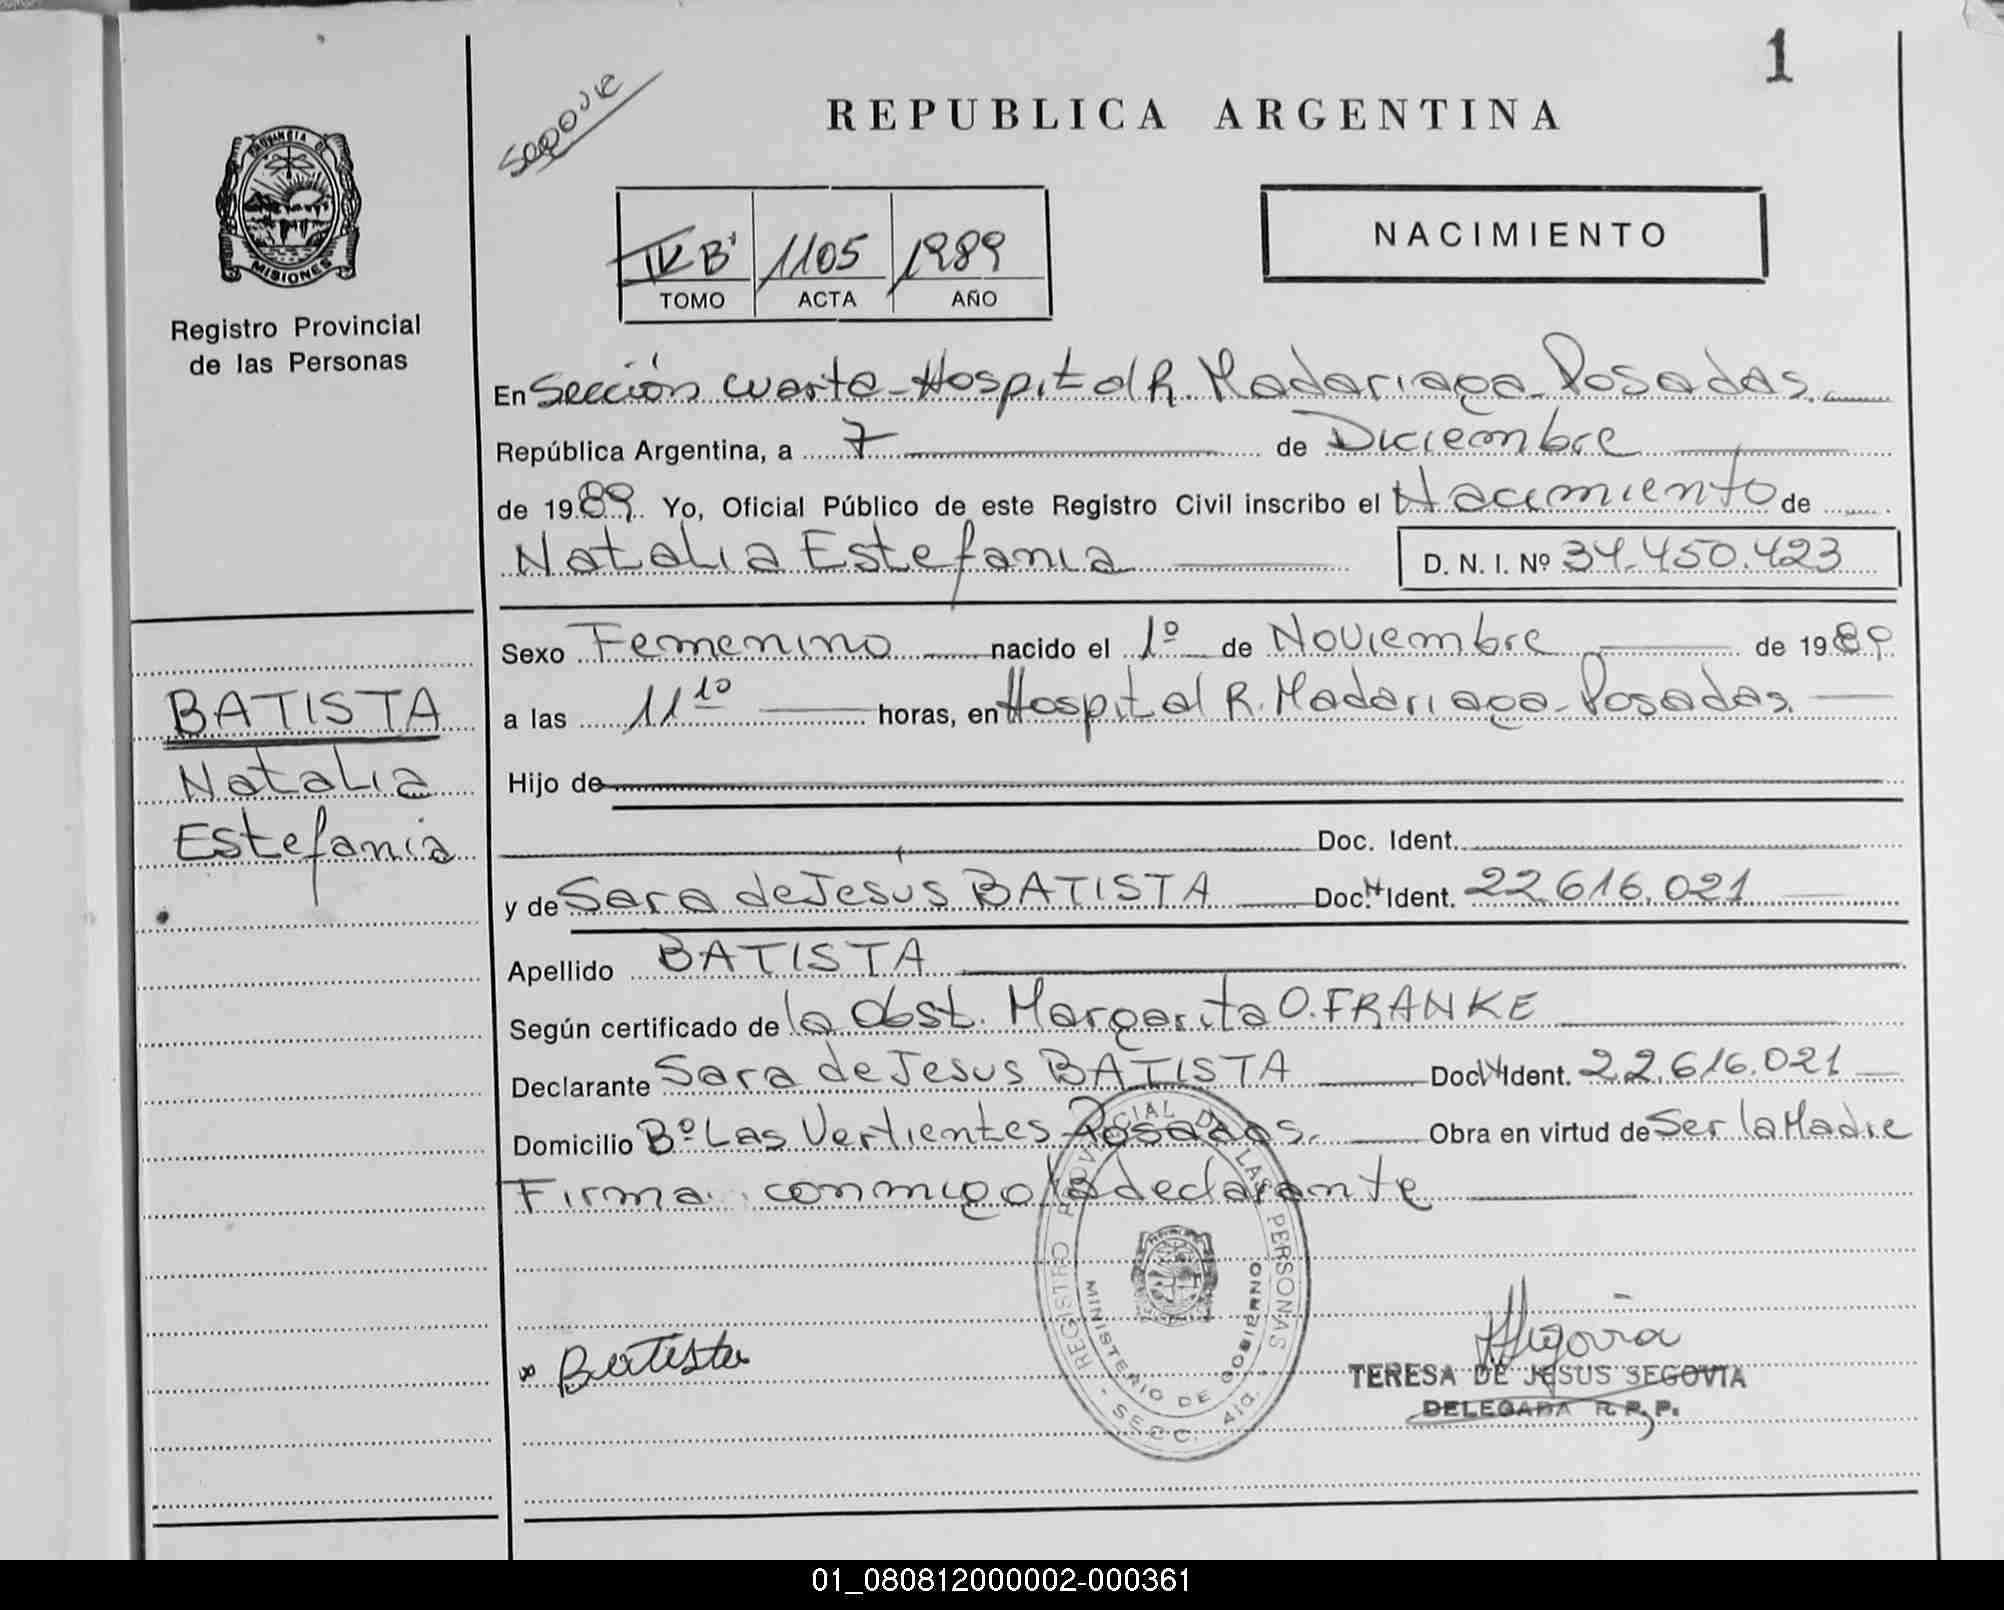 1
REPUBLICA ARGENTINA
PROVINCIA DE
MISIONES
Registro Provincial
de las Personas
NACIMIENTO
IV B' 1105 1989
TOMO ACTA AÑO
En Sección Cuarta - Hospital R. Madariaga - Posadas.
República Argentina, a 7 de Diciembre
de 1989. Yo, Oficial Público de este Registro Civil inscribo el Nacimiento de
Natalia Estefania D. N. I. Nº 34.450.423
Sexo Femenino nacido el 1º de Noviembre de 1989
a las 11 10 horas, en Hospital R. Madariaga - Posadas.
Hijo de
Doc. Ident.
y de Sara de Jesus BATISTA Doc. Ident. 22.616.021
Apellido BATISTA
Según certificado de la Obst. Margarita O. FRANKE
Declarante Sara de Jesus BATISTA Doc. Ident. 22.616.021
Domicilio Bº Las Vertientes Posadas. Obra en virtud de Ser la Madre
Firma conmigo la declarante
BATISTA
Natalia
Estefania
REGISTRO PROVINCIAL DE LAS PERSONAS
MINISTERIO DE GOBIERNO
- SECC. 4ta. -
Batista
Segovia
TERESA DE JESUS SEGOVIA
DELEGADA R. P. P.
01_080812000002-000361